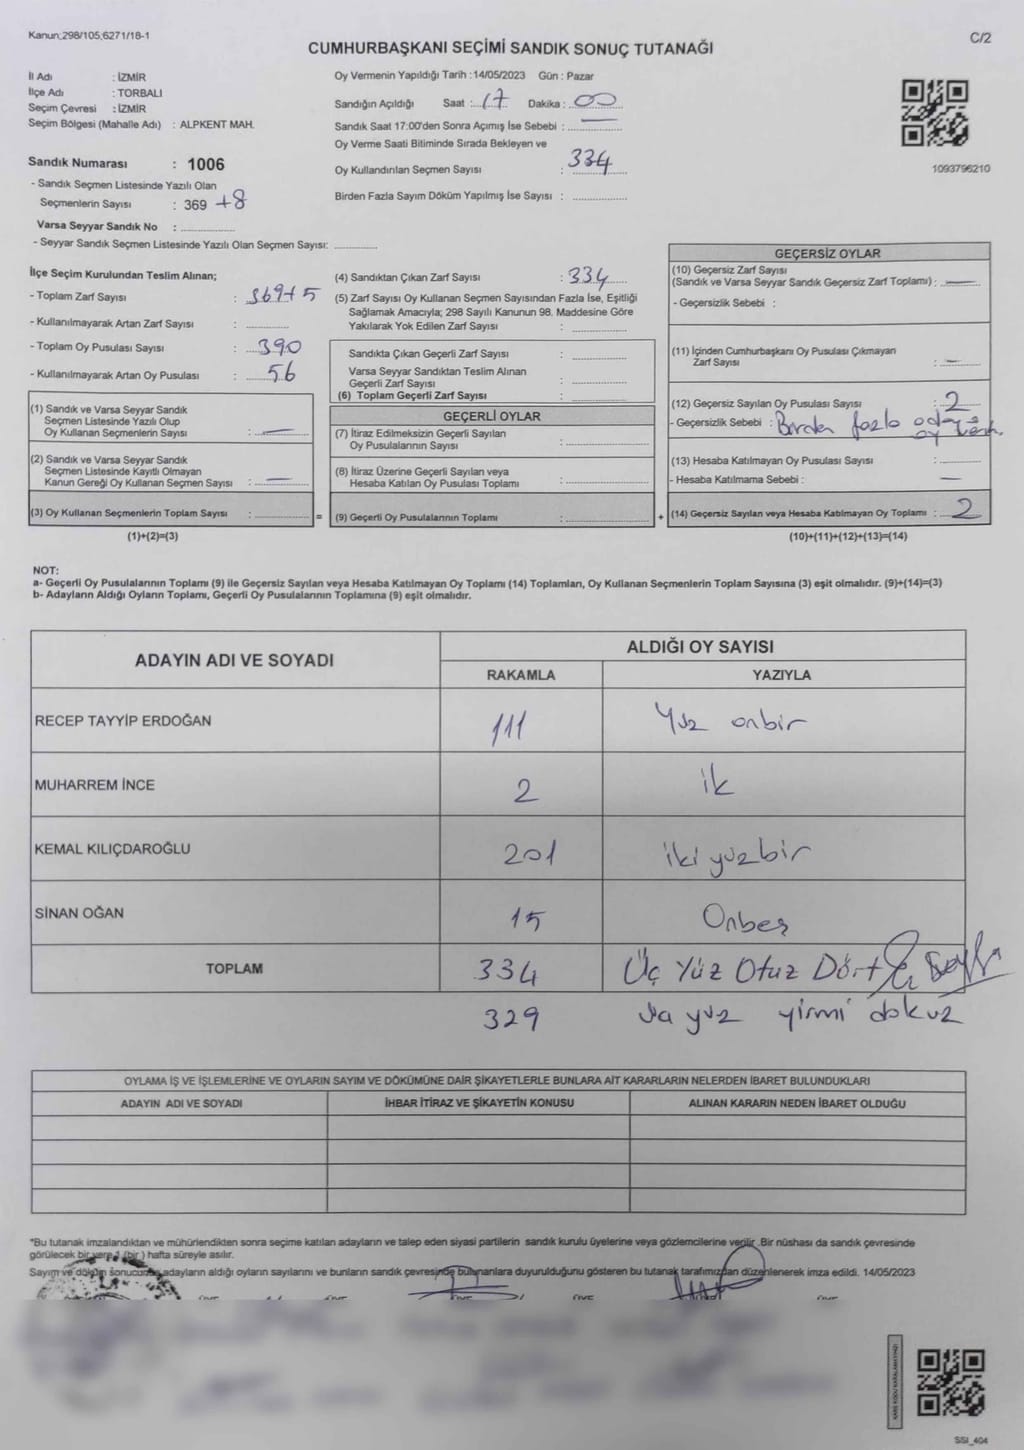 Kanun;298/105;6271/18-1
C/2
CUMHURBAŞKANI SEÇİMİ SANDIK SONUÇ TUTANAĞI
İl Adı : İZMİR
İlçe Adı : TORBALI
Seçim Çevresi : İZMİR
Seçim Bölgesi (Mahalle Adı) : ALPKENT MAH.
Oy Vermenin Yapıldığı Tarih :14/05/2023 Gün : Pazar
Sandığın Açıldığı Saat : 17 Dakika : 00
Sandık Saat 17:00'den Sonra Açımış İse Sebebi :
Oy Verme Saati Bitiminde Sırada Bekleyen ve
Oy Kullandırılan Seçmen Sayısı : 334
Birden Fazla Sayım Döküm Yapılmış İse Sayısı :
1093796210
Sandık Numarası : 1006
- Sandık Seçmen Listesinde Yazılı Olan
Seçmenlerin Sayısı : 369 +8
Varsa Seyyar Sandık No :
- Seyyar Sandık Seçmen Listesinde Yazılı Olan Seçmen Sayısı:
İlçe Seçim Kurulundan Teslim Alınan;
- Toplam Zarf Sayısı : 369+5
- Kullanılmayarak Artan Zarf Sayısı :
- Toplam Oy Pusulası Sayısı : 390
- Kullanılmayarak Artan Oy Pusulası : 56
(1) Sandık ve Varsa Seyyar Sandık
Seçmen Listesinde Yazılı Olup
Oy Kullanan Seçmenlerin Sayısı : —
(2) Sandık ve Varsa Seyyar Sandık
Seçmen Listesinde Kayıtlı Olmayan
Kanun Gereği Oy Kullanan Seçmen Sayısı : —
(3) Oy Kullanan Seçmenlerin Toplam Sayısı : =
(1)+(2)=(3)
(4) Sandıktan Çıkan Zarf Sayısı : 334
(5) Zarf Sayısı Oy Kullanan Seçmen Sayısından Fazla İse, Eşitliği
Sağlamak Amacıyla; 298 Sayılı Kanunun 98. Maddesine Göre
Yakılarak Yok Edilen Zarf Sayısı :
Sandıkta Çıkan Geçerli Zarf Sayısı :
Varsa Seyyar Sandıktan Teslim Alınan
Geçerli Zarf Sayısı :
(6) Toplam Geçerli Zarf Sayısı :
GEÇERLİ OYLAR
(7) İtiraz Edilmeksizin Geçerli Sayılan
Oy Pusulalarının Sayısı :
(8) İtiraz Üzerine Geçerli Sayılan veya
Hesaba Katılan Oy Pusulası Toplamı :
(9) Geçerli Oy Pusulalarının Toplamı : +
GEÇERSİZ OYLAR
(10) Geçersiz Zarf Sayısı
(Sandık ve Varsa Seyyar Sandık Geçersiz Zarf Toplamı) : —
- Geçersizlik Sebebi :
(11) İçinden Cumhurbaşkanı Oy Pusulası Çıkmayan
Zarf Sayısı : —
(12) Geçersiz Sayılan Oy Pusulası Sayısı : 2
- Geçersizlik Sebebi : Birden fazla adaya
oy
(13) Hesaba Katılmayan Oy Pusulası Sayısı :
- Hesaba Katılmama Sebebi : —
(14) Geçersiz Sayılan veya Hesaba Katılmayan Oy Toplamı : 2
(10)+(11)+(12)+(13)=(14)
NOT:
a- Geçerli Oy Pusulalarının Toplamı (9) ile Geçersiz Sayılan veya Hesaba Katılmayan Oy Toplamı (14) Toplamları, Oy Kullanan Seçmenlerin Toplam Sayısına (3) eşit olmalıdır. (9)+(14)=(3)
b- Adayların Aldığı Oyların Toplamı, Geçerli Oy Pusulalarının Toplamına (9) eşit olmalıdır.
ADAYIN ADI VE SOYADI ALDIĞI OY SAYISI
RAKAMLA YAZIYLA
RECEP TAYYİP ERDOĞAN 111 Yüz onbir
MUHARREM İNCE 2 ik
KEMAL KILIÇDAROĞLU 201 iki yüzbir
SİNAN OĞAN 15 Onbeş
TOPLAM 334 Üç Yüz Otuz Dört
329 yüz yirmi dokuz
OYLAMA İŞ VE İŞLEMLERİNE VE OYLARIN SAYIM VE DÖKÜMÜNE DAİR ŞİKAYETLERLE BUNLARA AİT KARARLARIN NELERDEN İBARET BULUNDUKLARI
ADAYIN ADI VE SOYADI İHBAR İTİRAZ VE ŞİKAYETİN KONUSU ALINAN KARARIN NEDEN İBARET OLDUĞU
*Bu tutanak imzalandıktan ve mühürlendikten sonra seçime katılan adayların ve talep eden siyasi partilerin sandık kurulu üyelerine veya gözlemcilerine verilir. Bir nüshası da sandık çevresinde
görülecek bir yere 1 (bir ) hafta süreyle asılır.
Sayım ve döküm sonucunda adayların aldığı oyların sayılarını ve bunların sandık çevresinde bulunanlara duyurulduğunu gösteren bu tutanak tarafımızdan düzenlenerek imza edildi. 14/05/2023
SSI_404